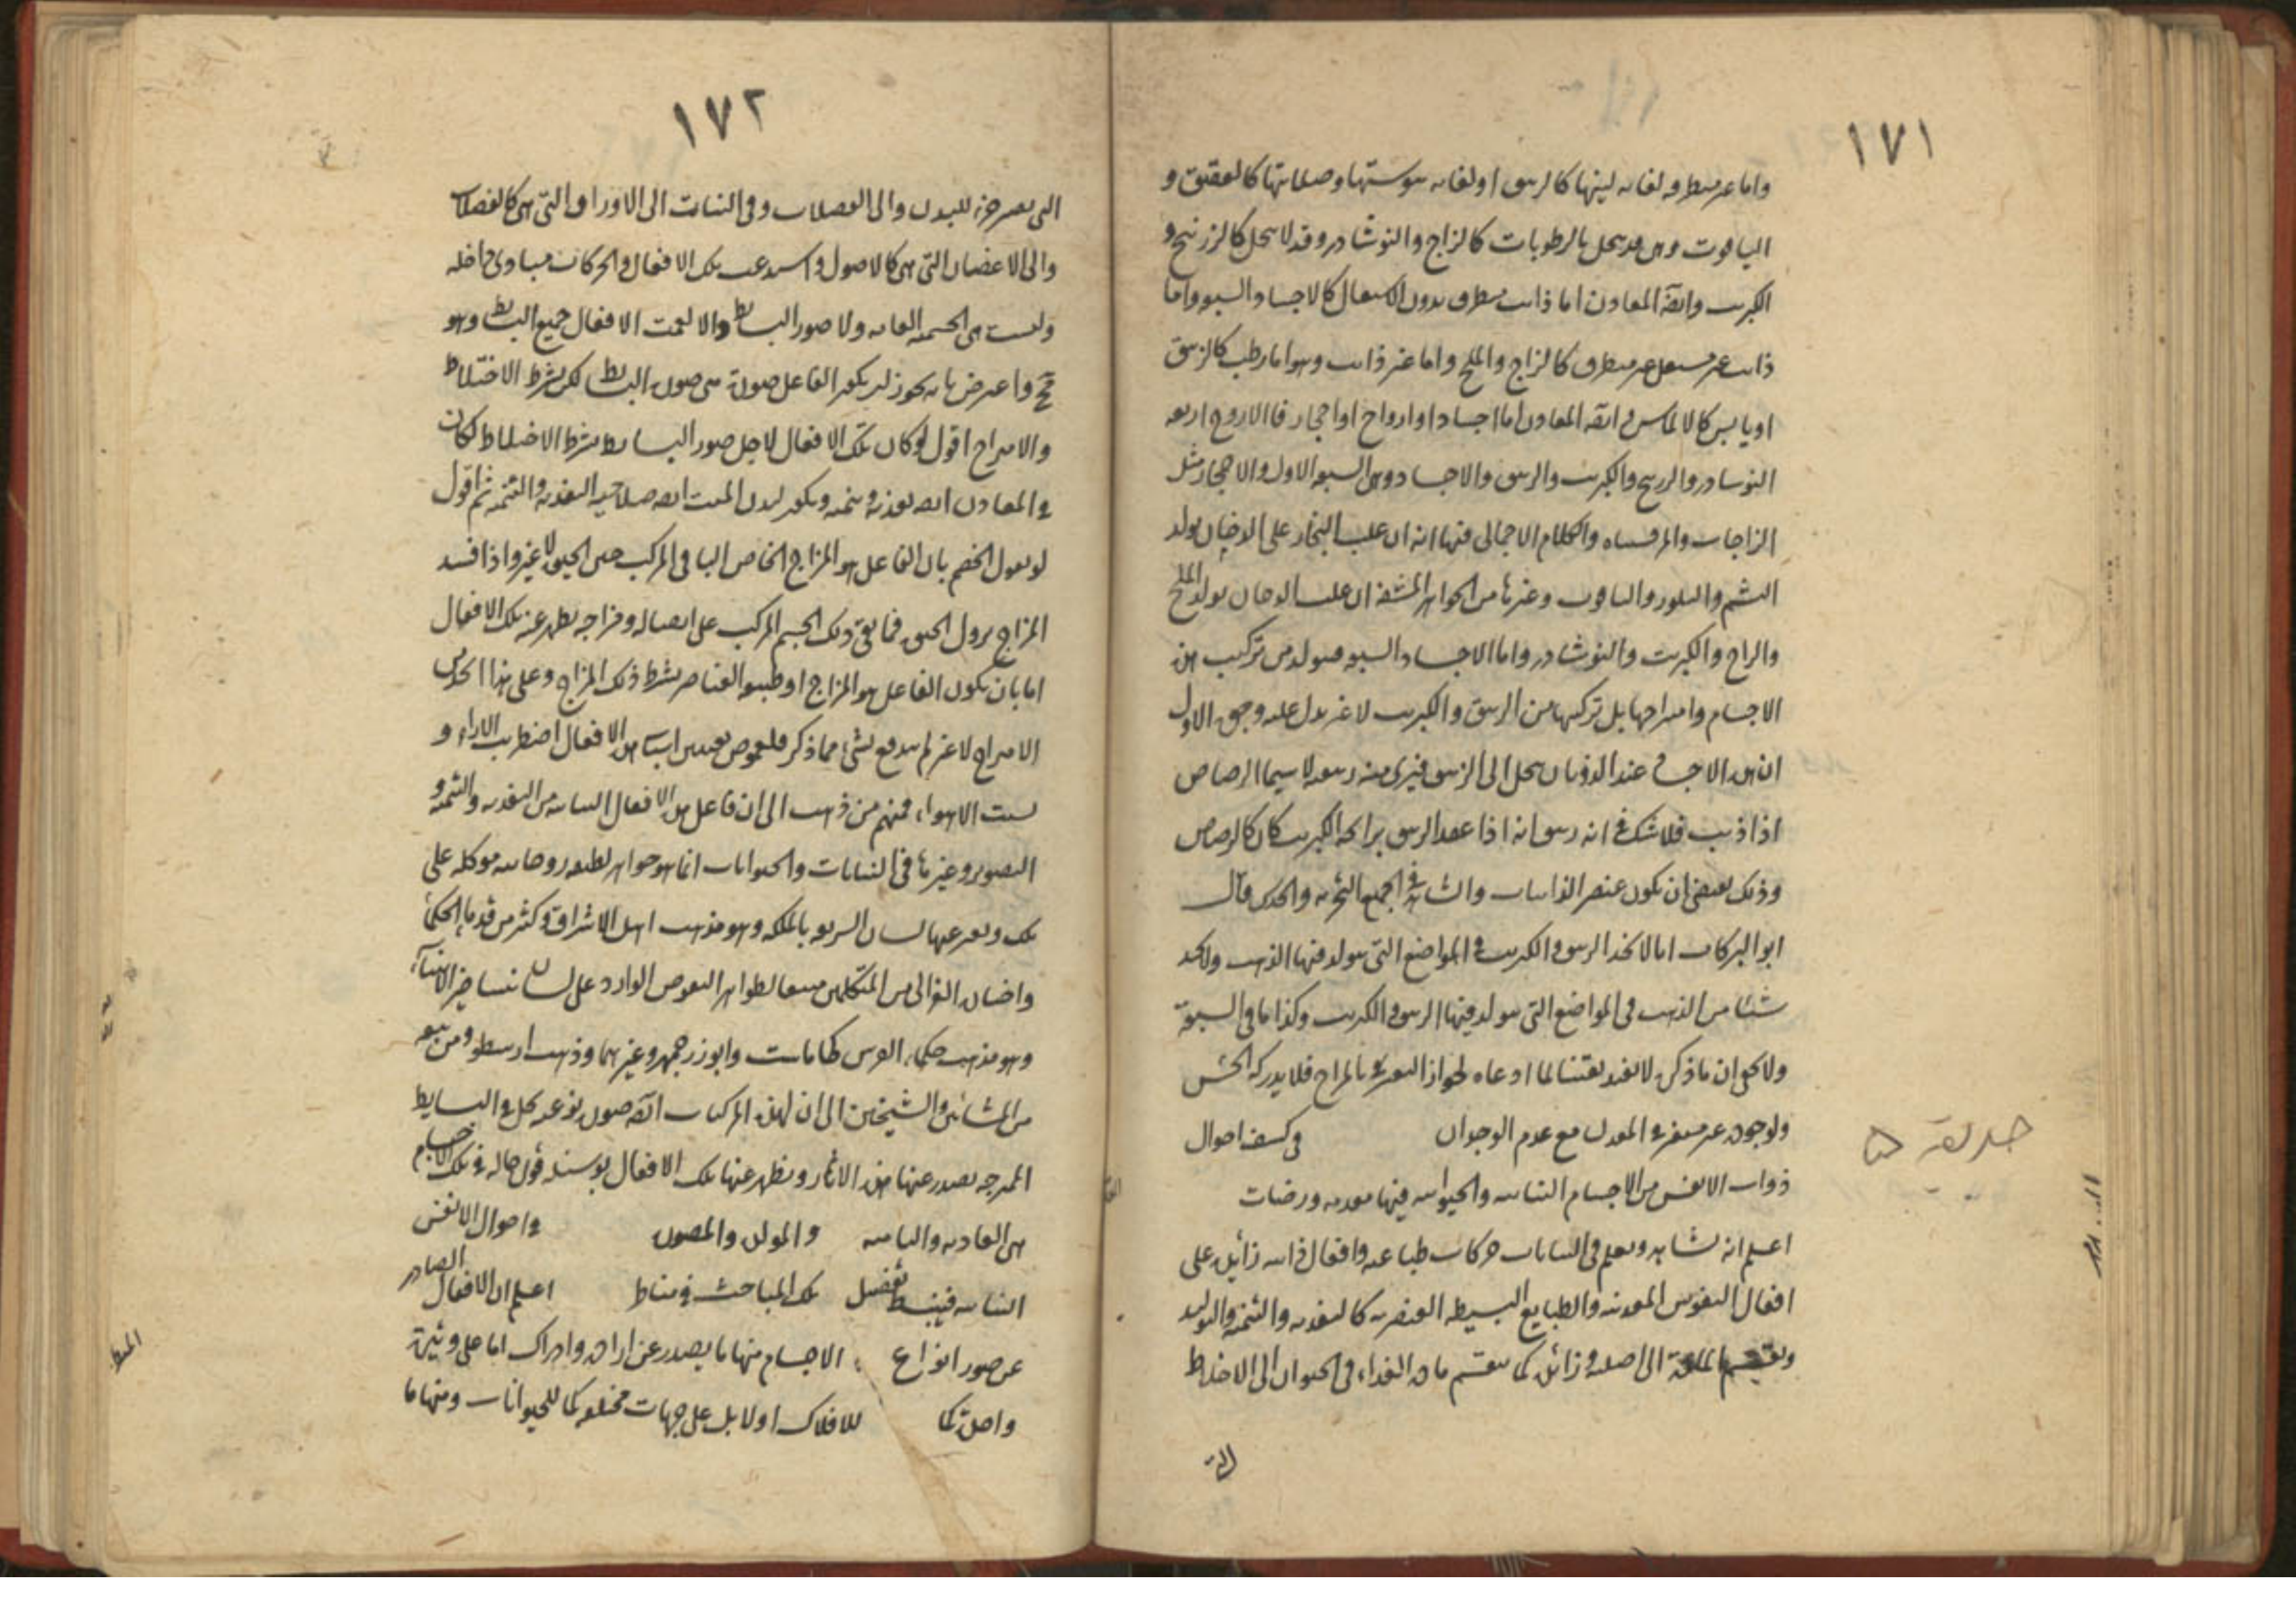 ١٧١
واما غير منطرقه لغايه لينها كالزيبق او لغايه يبوستها وصلابتها كالعقيق و
الياقوت وهى قد ينحل بالرطوبات كالزاج والنوشادر وقد لا ينحل كالزرنيخ و
الكبريت وايضا المعادن اما ذائب منطرق بدون الاشتعال كالاجساد السبعه واما
ذائب غير مشتعل غير منطرق كالزاج والملح واما غير ذائب وهو اما رطب كالزيبق
او يابس كالالماس وايضا المعادن اما اجساد او ارواح او احجار فالارواح اربعه
النوشادر والزرنيخ والكبريت والزيبق والاجساد وهى السبعه الاول والاحجار مثل
الزاجات والمرقشاه والكلام الاجمالى فيها انه ان غلب البخار على الدخان يولد
اليشم والبلور والياقوت وغيرها من الجواهر المشفه ان غلب الدخان يولد الملح
والزاج والكبريت والنوشادر واما الاجساد السبعه فيتولد من تركيب هذه
الاجسام وامتزاجها بل تركبها من الزيبق والكبريت لا غير يدل عليه وجوه الاول
ان هذه الاجساد عند الذوبان ينحل الى الزيبق فيرى منه زيبق لا سيما الرصاص
اذا اذيب فلا شك فى انه زيبق انه اذا عقد الزيبق برائحه الكبريت كان كالرصاص
وذلك يقتضى ان يكون عنصر الذائبات والشاهد فى الجميع التجربه والحدس قال
ابو البركات اما لا نجد الزيبق والكبريت فى المواضع التى يتولد فيها الذهب ولا نجد
شيئا من الذهب فى المواضع التى يتولد فيها الزيبق والكبريت وكذا ما فى السبعة
ولا يخفى ان ما ذكره لا يفيد يقينا لما ادعاه لجواز التغير بالمزاج فلا يدركه الحس
ولوجود غير مستقر فى المعدن مع عدم الوجدان فى كشف احوال
حديقه ۵
ذوات الانفس من الاجسام النباتيه والحيوانيه فيها مقدمه ورضات
اعلم انه نشاهد ونعلم فى النباتات حركات طباعيه وافعال ذاتيه زائده على
افعال النفوس المعدنيه والطبايع البسيطه العنصريه كالتغذيه والتنميه والتوليد
وتقسيم الماده الى اصليه وزائده كما ينقسم ماده الغذاء فى الحيوان الى الاخلاط
التى
١٧٢
التى تصير جزء للبدن والى الفضلات وفى النبات الى الاوراق التى هى كالفضلات
والى الاغصان التى هى كالاصول واستدعت تلك الافعال والحركات مبادى داخله
وليست هى الجسميه العامه ولا صور البسائط والا لعمت الافعال جميع البسائط وهو
مح واعترض بانه يجوز ان يكون الفاعل صورة من صور البسائط لكن بشرط الاختلاط
والامتزاج اقول لو كان تلك الافعال لاجل صور البسائط بشرط الاختلاط لكان
فى المعادن ايضا تغذيه وتنميه ويكون لبدن الميت ايضا صلاحيه التغذيه والتنميه ثم اقول
لو يقول الخصم بان الفاعل هو المزاج الخاص الباقى للمركب حين الحيوه لا غير واذا فسد
المزاج يزول الحيوه فما بقى ذلك الجسم المركب على اتصاله ومزاجه يظهر عنه تلك الافعال
اما بان يكون الفاعل هو المزاج او طبيعه العناصر بشرط ذلك المزاج وعلى هذا الحدس
الامتزاج لا غير لم يندفع بشىء مما ذكر فلغموض تعيين اسباب هذه الافعال اضطربت الاراء و
تشتت الاهواء فمنهم من ذهب الى ان فاعل هذه الافعال النباتيه من التغذيه والتنميه و
التصوير وغيرها فى النباتات والحيوانات انما هو جواهر لطيفه روحانيه موكله على
تلك ويعبر عنها لسان الشريعه بالملكه وهو مذهب اهل الاشراق وكثير من قدماء الحكماء
واختاره الغزالى من المتكلمين متبعا لظواهر النصوص الوارد على لسان نبينا خير الانبياء
وهو مذهب حكماء الفرس كجاماست وابوزرجمهر وغيرهما وذهب ارسطو ومن تبعه
من المشائين والشيخين الى ان لهذه المركبات ايضا صوره نوعيه يحل فى البسايط
الممتزجه يصدر عنها هذه الاثار ويظهر عنها تلك الافعال بوسيله قوى حاله فى تلك الاجسام
هى الغاذيه والناميه والمولده والمصوره فى احوال الانفس
النباتيه فيبسط بتفصيل تلك المباحث فى مناط اعلم ان الافعال الصادر
عن صور انواع الاجسام منها ما يصدر عن اراده وادراك اما على وتيرة
واحدة كما للافلاك او لا بل على جهات مختلفه كما للحيوانات ومنها ما